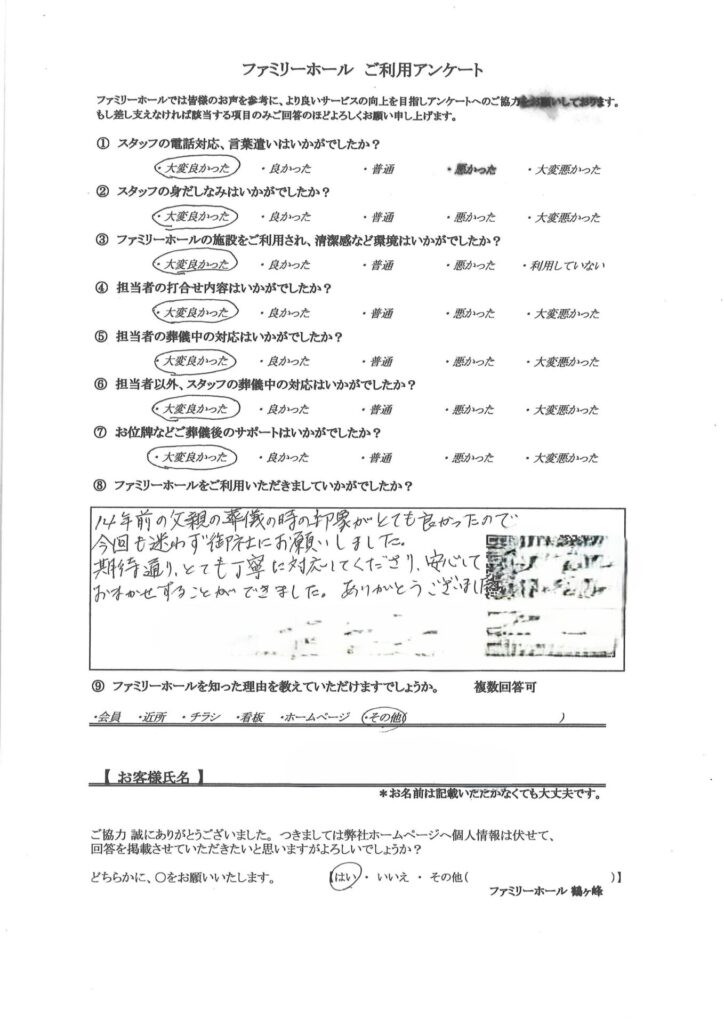 ファミリーホール ご利用アンケート
ファミリーホールでは皆様のお声を参考に、より良いサービスの向上を目指しアンケートへのご協力をお願いしております。
もし差し支えなければ該当する項目のみご回答のほどよろしくお願い申し上げます。
① スタッフの電話対応、言葉遣いはいかがでしたか？
・大変良かった ・良かった ・普通 ・悪かった ・大変悪かった
② スタッフの身だしなみはいかがでしたか？
・大変良かった ・良かった ・普通 ・悪かった ・大変悪かった
③ ファミリーホールの施設をご利用され、清潔感など環境はいかがでしたか？
・大変良かった ・良かった ・普通 ・悪かった ・利用していない
④ 担当者の打合せ内容はいかがでしたか？
・大変良かった ・良かった ・普通 ・悪かった ・大変悪かった
⑤ 担当者の葬儀中の対応はいかがでしたか？
・大変良かった ・良かった ・普通 ・悪かった ・大変悪かった
⑥ 担当者以外、スタッフの葬儀中の対応はいかがでしたか？
・大変良かった ・良かった ・普通 ・悪かった ・大変悪かった
⑦ お位牌などご葬儀後のサポートはいかがでしたか？
・大変良かった ・良かった ・普通 ・悪かった ・大変悪かった
⑧ ファミリーホールをご利用いただきましていかがでしたか？
14年前の父親の葬儀の時の印象がとても良かったので
今回も迷わず御社にお願いしました。
期待通り、とても丁寧に対応してくださり、安心して
おまかせすることができました。ありがとうございました
⑨ ファミリーホールを知った理由を教えていただけますでしょうか。 複数回答可
・会員 ・近所 ・チラシ ・看板 ・ホームページ ・その他( )
【 お客様氏名 】
＊お名前は記載いただかなくても大丈夫です。
ご協力 誠にありがとうございました。つきましては弊社ホームページへ個人情報は伏せて、
回答を掲載させていただきたいと思いますがよろしいでしょうか？
どちらかに、〇をお願いいたします。 【はい ・ いいえ ・ その他( )】
ファミリーホール 鶴ヶ峰